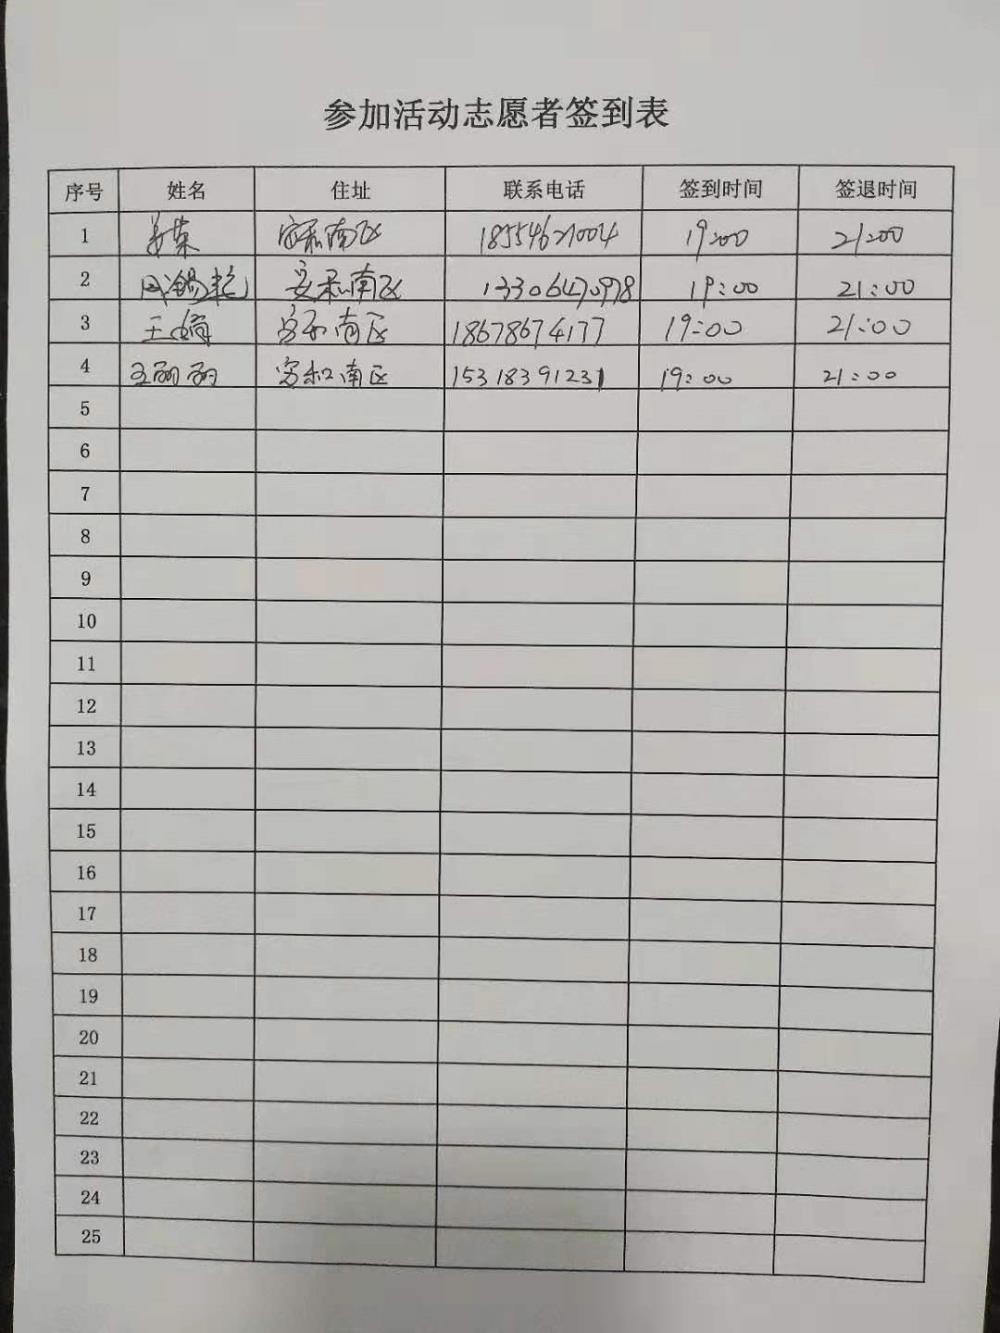 参加活动志愿者签到表
序号 姓名 住址 联系电话 签到时间 签退时间
1 姜荣 安和南区 18554621004 19:00 21:00
2 安和南区 13306470978 19:00 21:00
3 王嫡 安和南区 18678674177 19:00 21:00
4 王丽丽 安和南区 15318391231 19:00 21:00
5
6
7
8
9
10
11
12
13
14
15
16
17
18
19
20
21
22
23
24
25